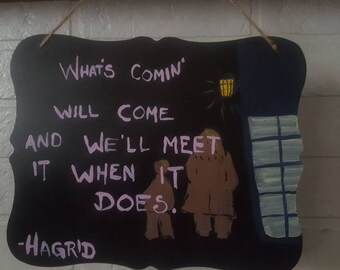 WHAT'S COMIN'
WILL COME
AND WE'LL MEET
IT WHEN IT
DOES.
-HAGRID